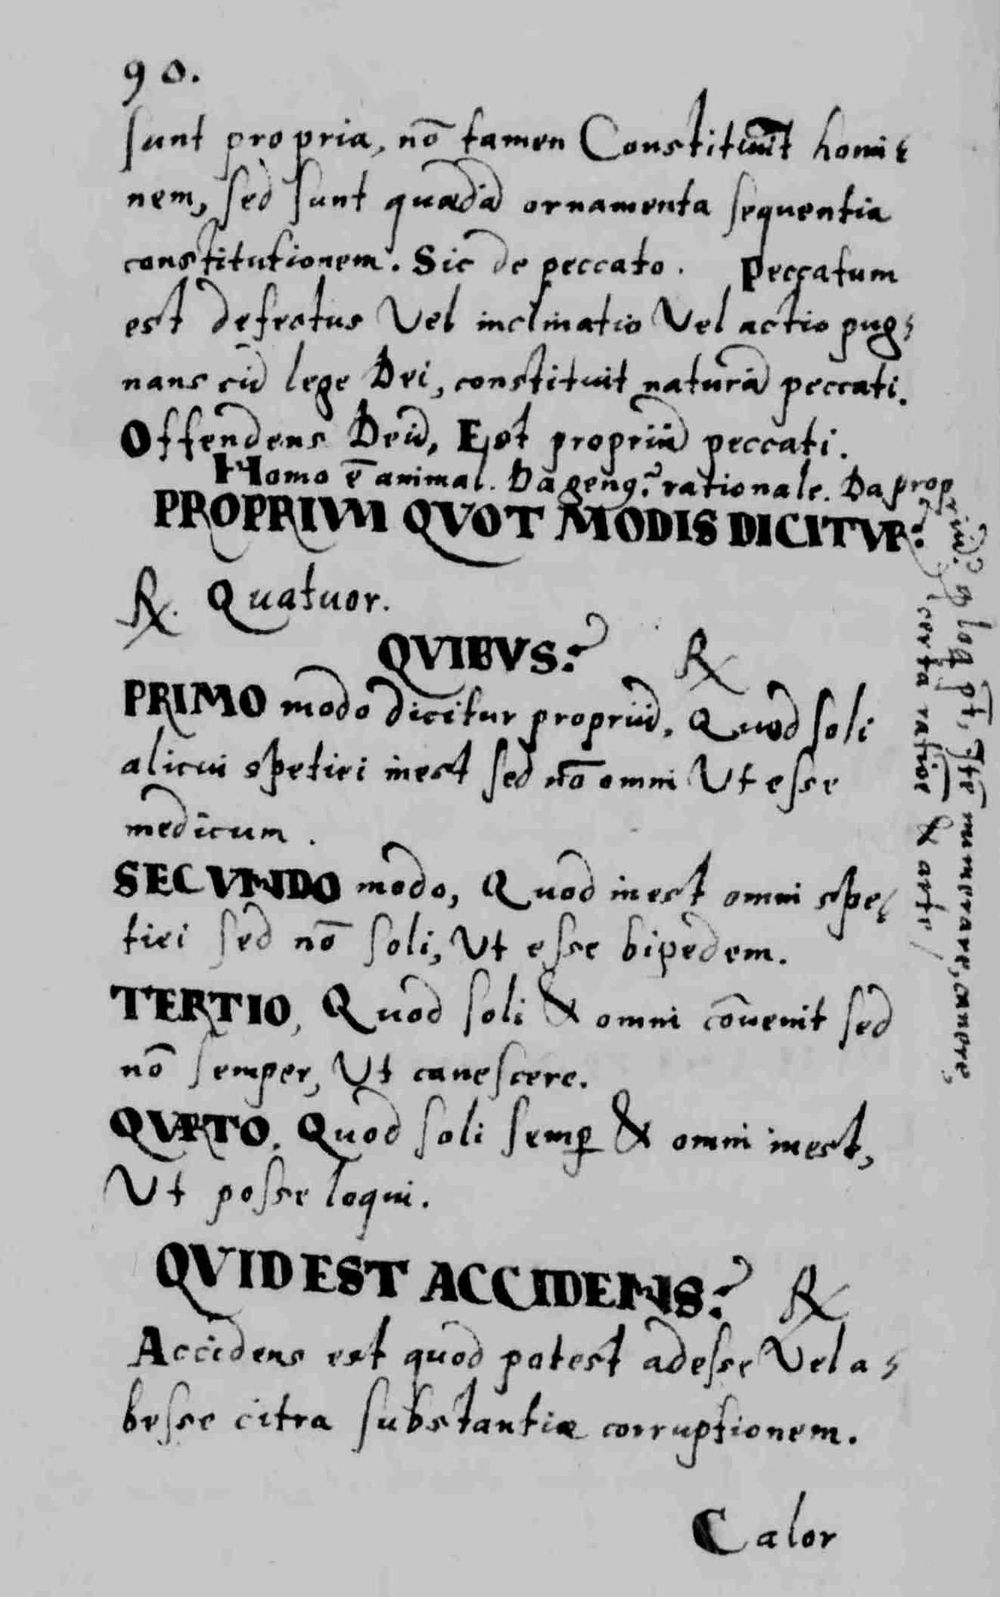 90.
sunt propria, nō tamen Constituūt homi⸗
nem, sed sunt quædā ornamenta sequentia
constitutionem. Sic de peccato. Peccatum
est defectus Vel inclinatio Vel actio pug⸗
nans cū lege Dei, constituit naturā peccati.
Offendens Deū, Est propriū peccati.
Homo ē animal. Da genꝰ? rationale. Da prop
riū? loq pt, Itē numerare, canere,
certa ratiōe & arte
PROPRIVM QVOT MODIS DICITVR?
℞. Quatuor.
QVIBVS? ℞
PRIMO modo dicitur propriū, Quod soli
alicui spetiei inest sed nō omni Ut esse
medicum.
SECVNDO modo, Quod inest omni spe⸗
tiei sed nō soli, Ut esse bipedem.
TERTIO, Quod soli & omni cōuenit sed
nō semper, Ut canescere.
QVARTO. Quod soli semꝑ & omni inest,
Ut posse loqui.
QVID EST ACCIDENS? ℞
Accidens est quod potest adesse Vel a⸗
besse citra substantiæ corruptionem.
Calor